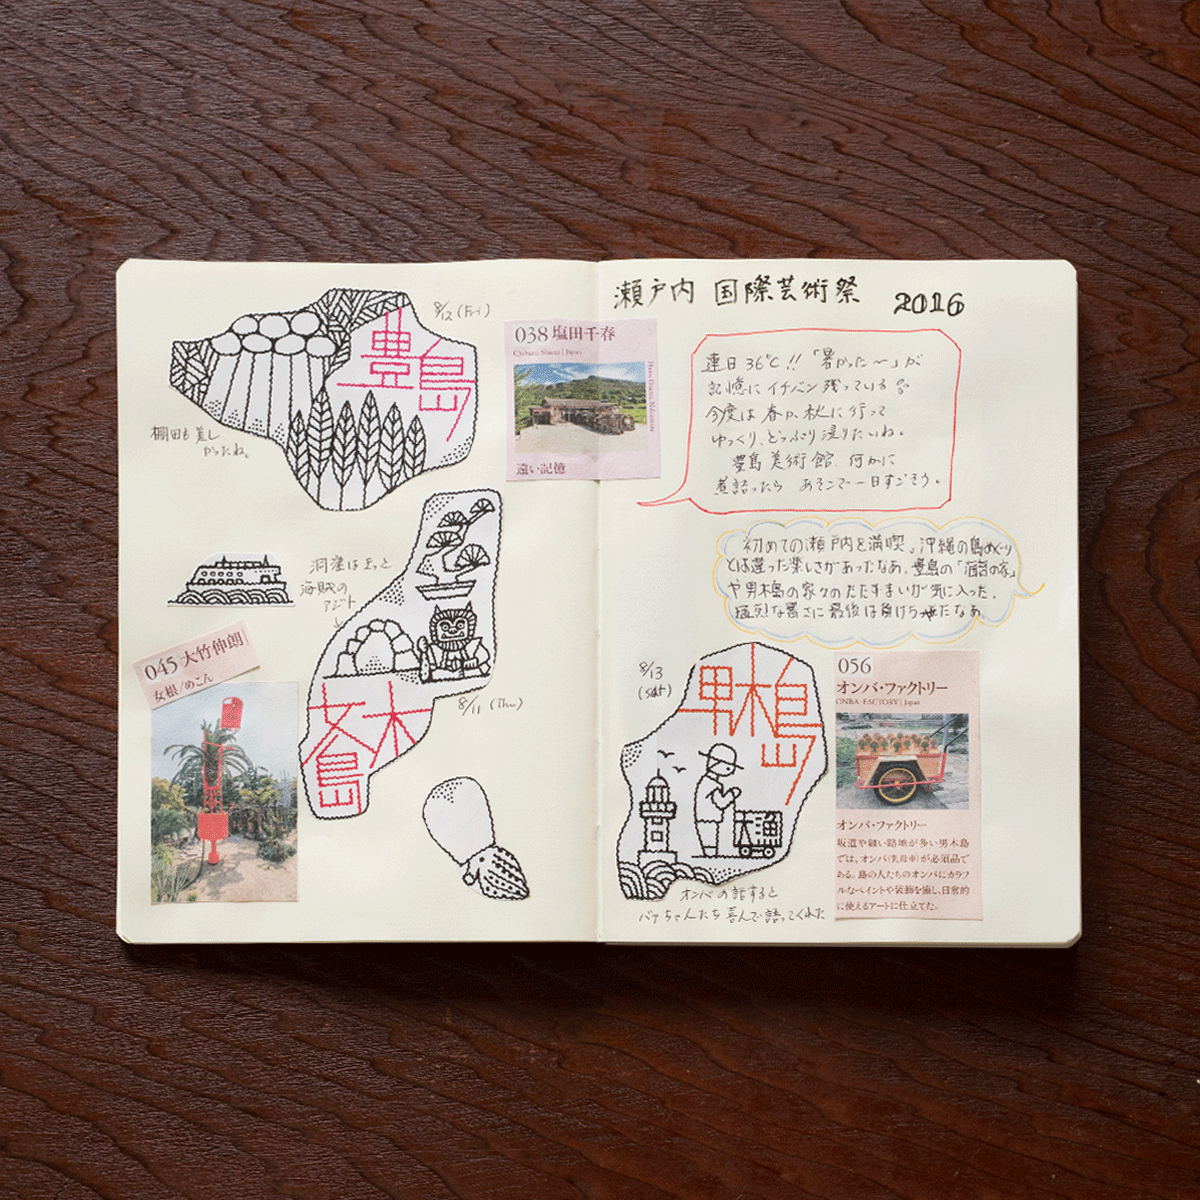 8/12 (Fri)
豊島
棚田も美し
かったね。
洞窟はきっと
海賊の
アジト
8/11 (Thu)
女木島
045 大竹伸朗
女根/めこん
038 塩田千春
Chiharu Shiota | Japan
遠い記憶
瀬戸内 国際芸術祭 2016
連日36℃!!「暑かった〜」が
記憶にイチバン残っている。
今度は春か秋に行って
ゆっくり、どっぷり浸りたいね。
豊島美術館、何かに
煮詰ったら あそこで一日すごそう。
初めての瀬戸内を満喫。沖縄の島めぐり
とは違った楽しさがあったなあ。豊島の「
の家」
や男木島の家々のたたずまいが気に入った。
猛烈な暑さに最後は負けちゃったなあ。
8/13
(sat)
男木島
大漁
オンバの話すると
バァちゃんたち喜んで語ってくれた
056
オンバ・ファクトリー
ONBA FACTORY | Japan
オンバ・ファクトリー
坂道や細い路地が多い男木島
では、オンバ(乳母車)が必須品で
ある。島の人たちのオンバにカラフ
ルなペイントや装飾を施し、日常的
に使えるアートに仕立てた。